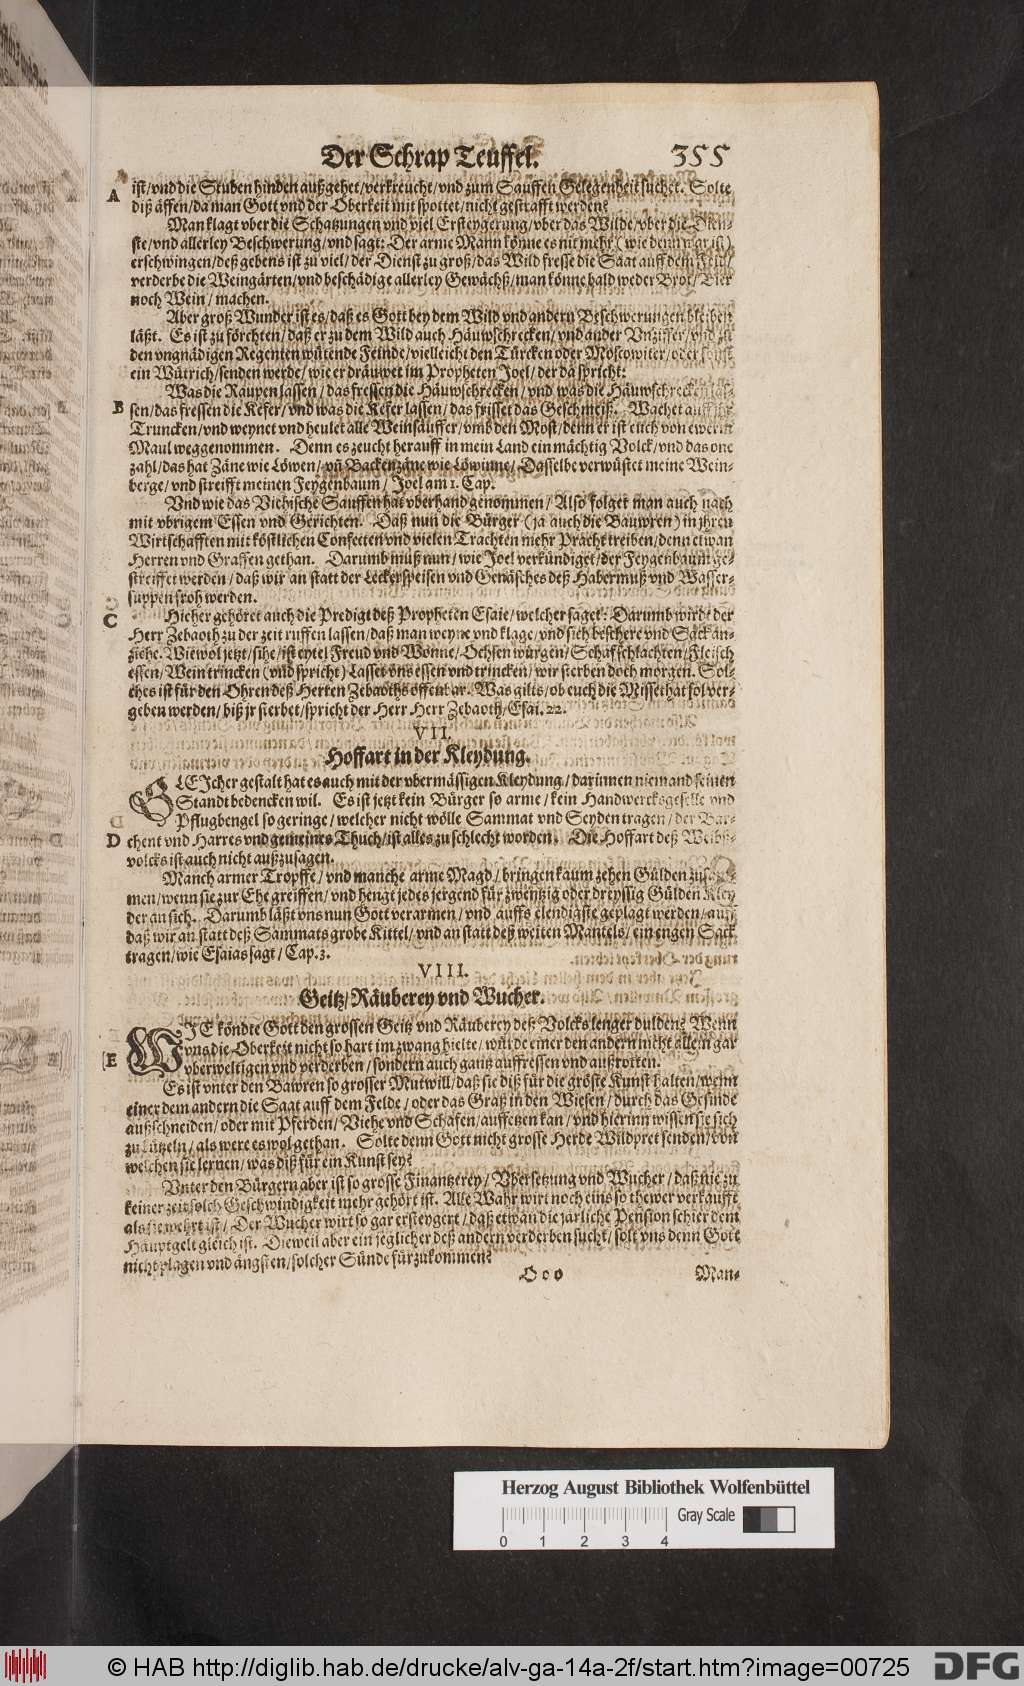 Der Schrap Teuffel. 355
A ist/vnd die Stuben hinden außgehet/verkreucht/vnd zum Sauffen Gelegenheit suchet. Solte
diß äffen/da man Gott vnd der Oberkeit mit spottet/nicht gestrafft werden?
Man klagt vber die Schatzungen vnd viel Ersteygerung/vber das Wilde/vber die Dien-
ste/vnd allerley Beschwerung/vnd sagt: Der arme Mann könne es nit mehr (wie denn war ist)
erschwingen/deß gebens ist zu viel/der Dienst zu groß/das Wild fresse die Saat auff dem Feld/
verderbe die Weingärten/vnd beschädige allerley Gewächß/man könne bald weder Brot/Bier
noch Wein/machen.
Aber groß Wunder ist es/daß es Gott bey dem Wild vnd andern Beschwerungen bleiben
läßt. Es ist zu förchten/daß er zu dem Wild auch Häuwschrecken/vnd ander Vnziffer/vnd zu
den vngnädigen Regenten wütende Feinde/vielleicht den Türcken oder Moscowiter/oder sonst
ein Wütrich/senden werde/wie er dräuwet im Propheten Joel/der da spricht:
Was die Raupen lassen/das fressen die Häuwschrecken/vnd was die Häuwschrecken las-
B sen/das fressen die Kefer/vnd was die Kefer lassen/das frisset das Geschmeiß. Wachet auff jhr
Truncken/vnd weynet vnd heulet alle Weinsäuffer/vmb den Most/denn er ist euch von ewerm
Maul weggenommen. Denn es zeucht herauff in mein Land ein mächtig Volck/vnd das one
zahl/das hat Zäne wie Löwen/vñ Backenzäne wie Löwinne/Dasselbe verwüstet meine Wein-
berge/vnd streifft meinen Feygenbaum/Joel am 1. Cap.
Vnd wie das Viehische Sauffen hat vberhand genommen/Also folget man auch nach
mit vbrigem Essen vnd Gerichten. Daß nun die Bürger (ja auch die Bauwren) in jhren
Wirtschafften mit köstlichen Confecten vnd vielen Trachten mehr Pracht treiben/denn etwan
Herren vnd Graffen gethan. Darumb muß nun/wie Joel verkündiget/der Feygenbaum ge-
streiffet werden/daß wir an statt der Leckerspeisen vnd Genäsches deß Habermuß vnd Wasser-
suppen froh werden.
C Hieher gehöret auch die Predigt deß Propheten Esaie/welcher saget: Darumb wirdt der
Herr Zebaoth zu der zeit ruffen lassen/daß man weyne vnd klage/vnd sich beschere vnd Säck an-
ziehe. Wiewol jetzt/sihe/ist eytel Freud vnd Wonne/Ochsen würgen/Schaf schlachten/Fleisch
essen/Wein trincken (vnd spricht) Lasset vns essen vnd trincken/wir sterben doch morgen. Sol-
ches ist für den Ohren deß Herren Zebaoths offenbar. Was gilts/ob euch die Missethat sol ver-
geben werden/biß jr sterbet/spricht der Herr Herr Zebaoth/Esai. 22.
VII.
Hoffart in der Kleydung.
GLEJcher gestalt hat es auch mit der vbermässigen Kleydung/darinnen niemand seinen
Standt bedencken wil. Es ist jetzt kein Bürger so arme/kein Handwercksgeselle vnd
Pflugbengel so geringe/welcher nicht wölle Sammat vnd Seyden tragen/der Bar-
D chent vnd Harres vnd gemeines Thuch/ist alles zu schlecht worden. Die Hoffart deß Weibs-
volcks ist auch nicht außzusagen.
Manch armer Tropffe/vnd manche arme Magd/bringen kaum zehen Gülden zusam-
men/wenn sie zur Ehe greiffen/vnd hengt jedes jergend für zwentzig oder dreyssig Gülden Kley-
der an sich. Darumb läßt vns nun Gott verarmen/vnd auffs elendigste geplagt werden/auff
daß wir an statt deß Sammats grobe Kittel/vnd an statt deß weiten Mantels/ein engen Sack
tragen/wie Esaias sagt/Cap. 3.
VIII.
Geitz/Räuberey vnd Wucher.
WJE köndte Gott den grossen Geitz vnd Räuberey deß Volcks lenger dulden? Wenn
E vns die Oberkeit nicht so hart im zwang hielte/würde einer den andern nicht allein gar
vberweltigen vnd verderben/sondern auch gantz auffressen vnd außrotten.
Es ist vnter den Bawren so grosser Mutwill/daß sie diß für die gröste Kunst halten/wenn
einer dem andern die Saat auff dem Felde/oder das Graß in den Wiesen/durch das Gesinde
außschneiden/oder mit Pferden/Viehe vnd Schafen/auffetzen kan/vnd hierinn wissen sie sich
zu kützeln/als were es wol gethan. Solte denn Gott nicht grosse Herde Wildpret senden/von
welchen sie lernen/was diß für ein Kunst sey?
Vnter den Bürgern aber ist so grosse Finantzerey/Vbersetzung vnd Wucher/daß nie zu
keiner zeit solch Geschwindigkeit mehr gehört ist. Alle Wahr wirt noch eins so thewer verkaufft
als sie wehrt ist/Der Wucher wirt so gar ersteygert/daß etwan die järliche Pension schier dem
Hauptgelt gleich ist. Dieweil aber ein jeglicher deß andern verderben sucht/solt vns denn Gott
nicht plagen vnd ängsten/solcher Sünde fürzukommen?
Ooo Man-
Herzog August Bibliothek Wolfenbüttel
Gray Scale
0 1 2 3 4
© HAB http://diglib.hab.de/drucke/alv-ga-14a-2f/start.htm?image=00725 DFG